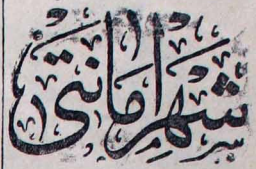 شهر امانتی